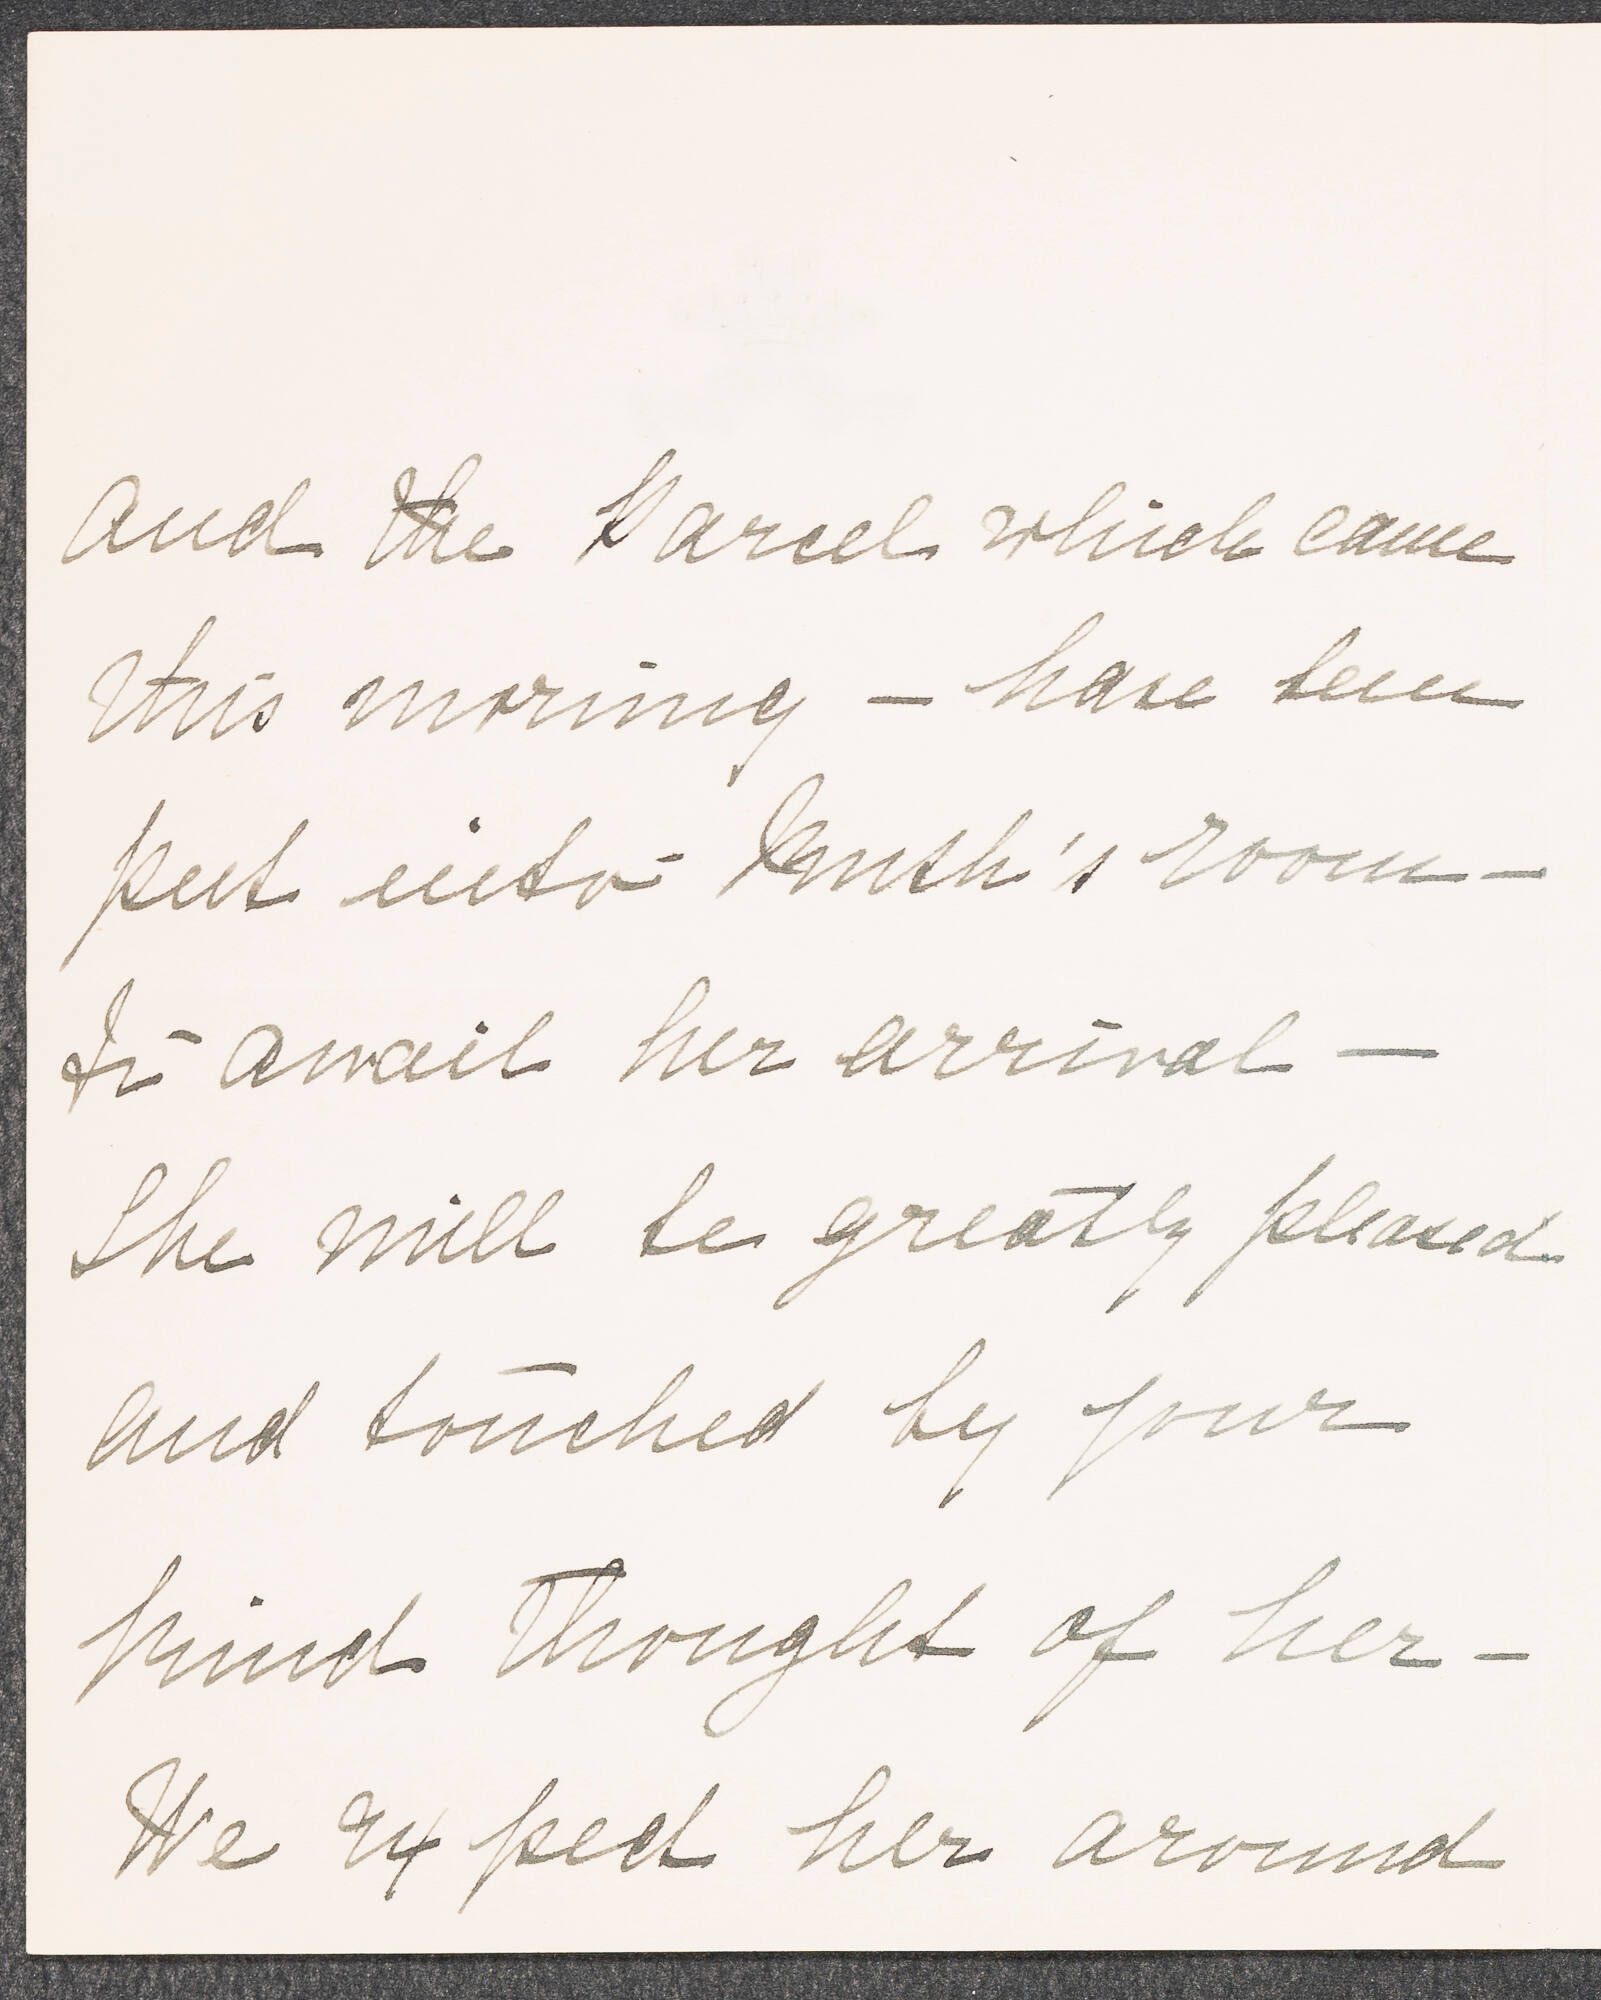 and the Parcel which came
this morning – have been
put into Ruth's room –
to await her arrival –
She will be greatly pleased
and touched by your
kind thought of her –
We expect her around